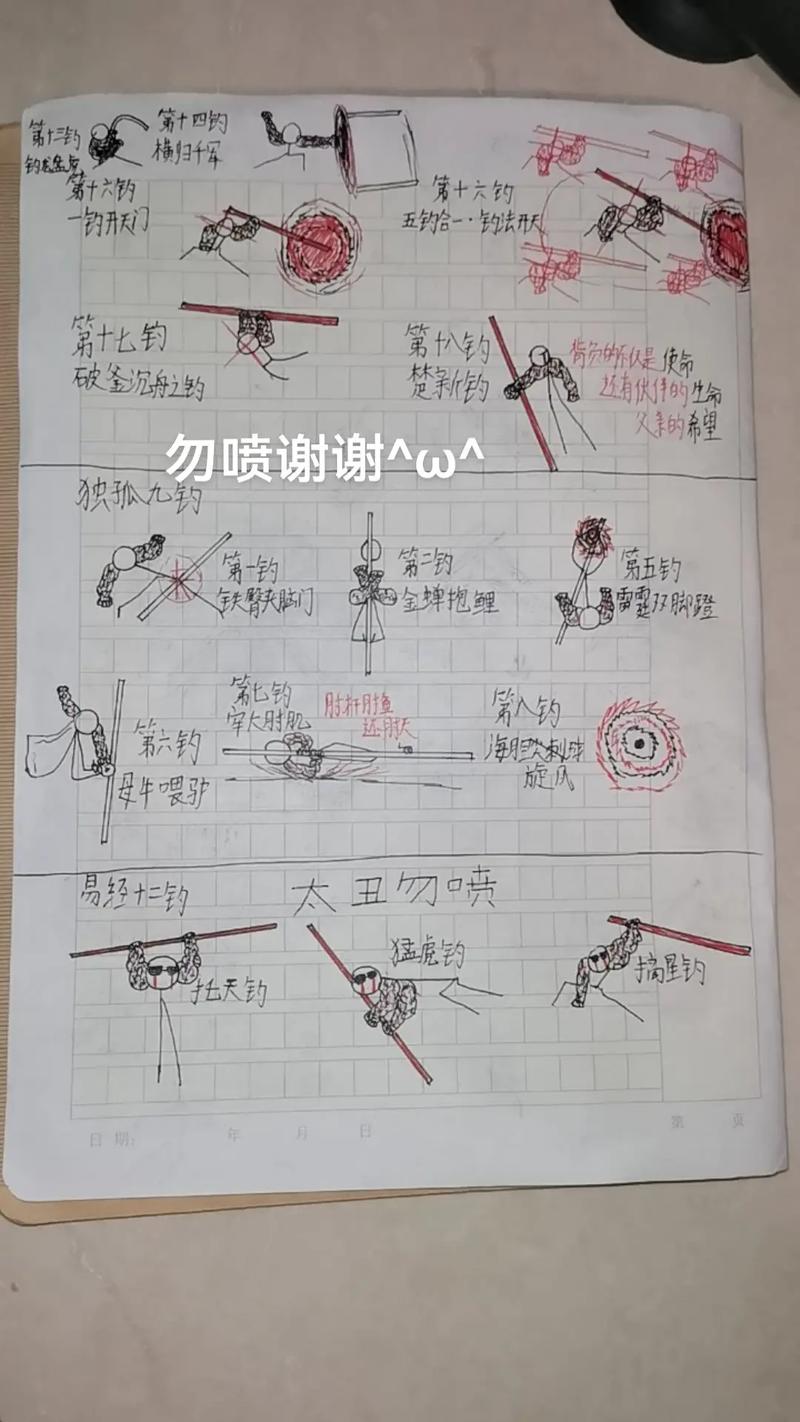 第十三钓
第十四钓
横归千军
第十六钓
一钓开天门
第十六钓
五钓合一·钓法开天
第十七钓
破釜沉舟之钓
第十八钓
楚新钓
背负的不仅是使命
还有伙伴的生命
父亲的希望
勿喷谢谢^ω^
独孤九钓
第一钓
铁臀夹脑门
第二钓
金蝉抱鲤
第五钓
雷霆双脚蹬
第六钓
母牛喂驴
第七钓
宰大肘肌
肘杆肘鱼
还肘天
第八钓
海胆尖刺球
旋风
易经十二钓
太丑勿喷
托天钓
猛虎钓
摘星钓
日期: 年 月 日
第 页